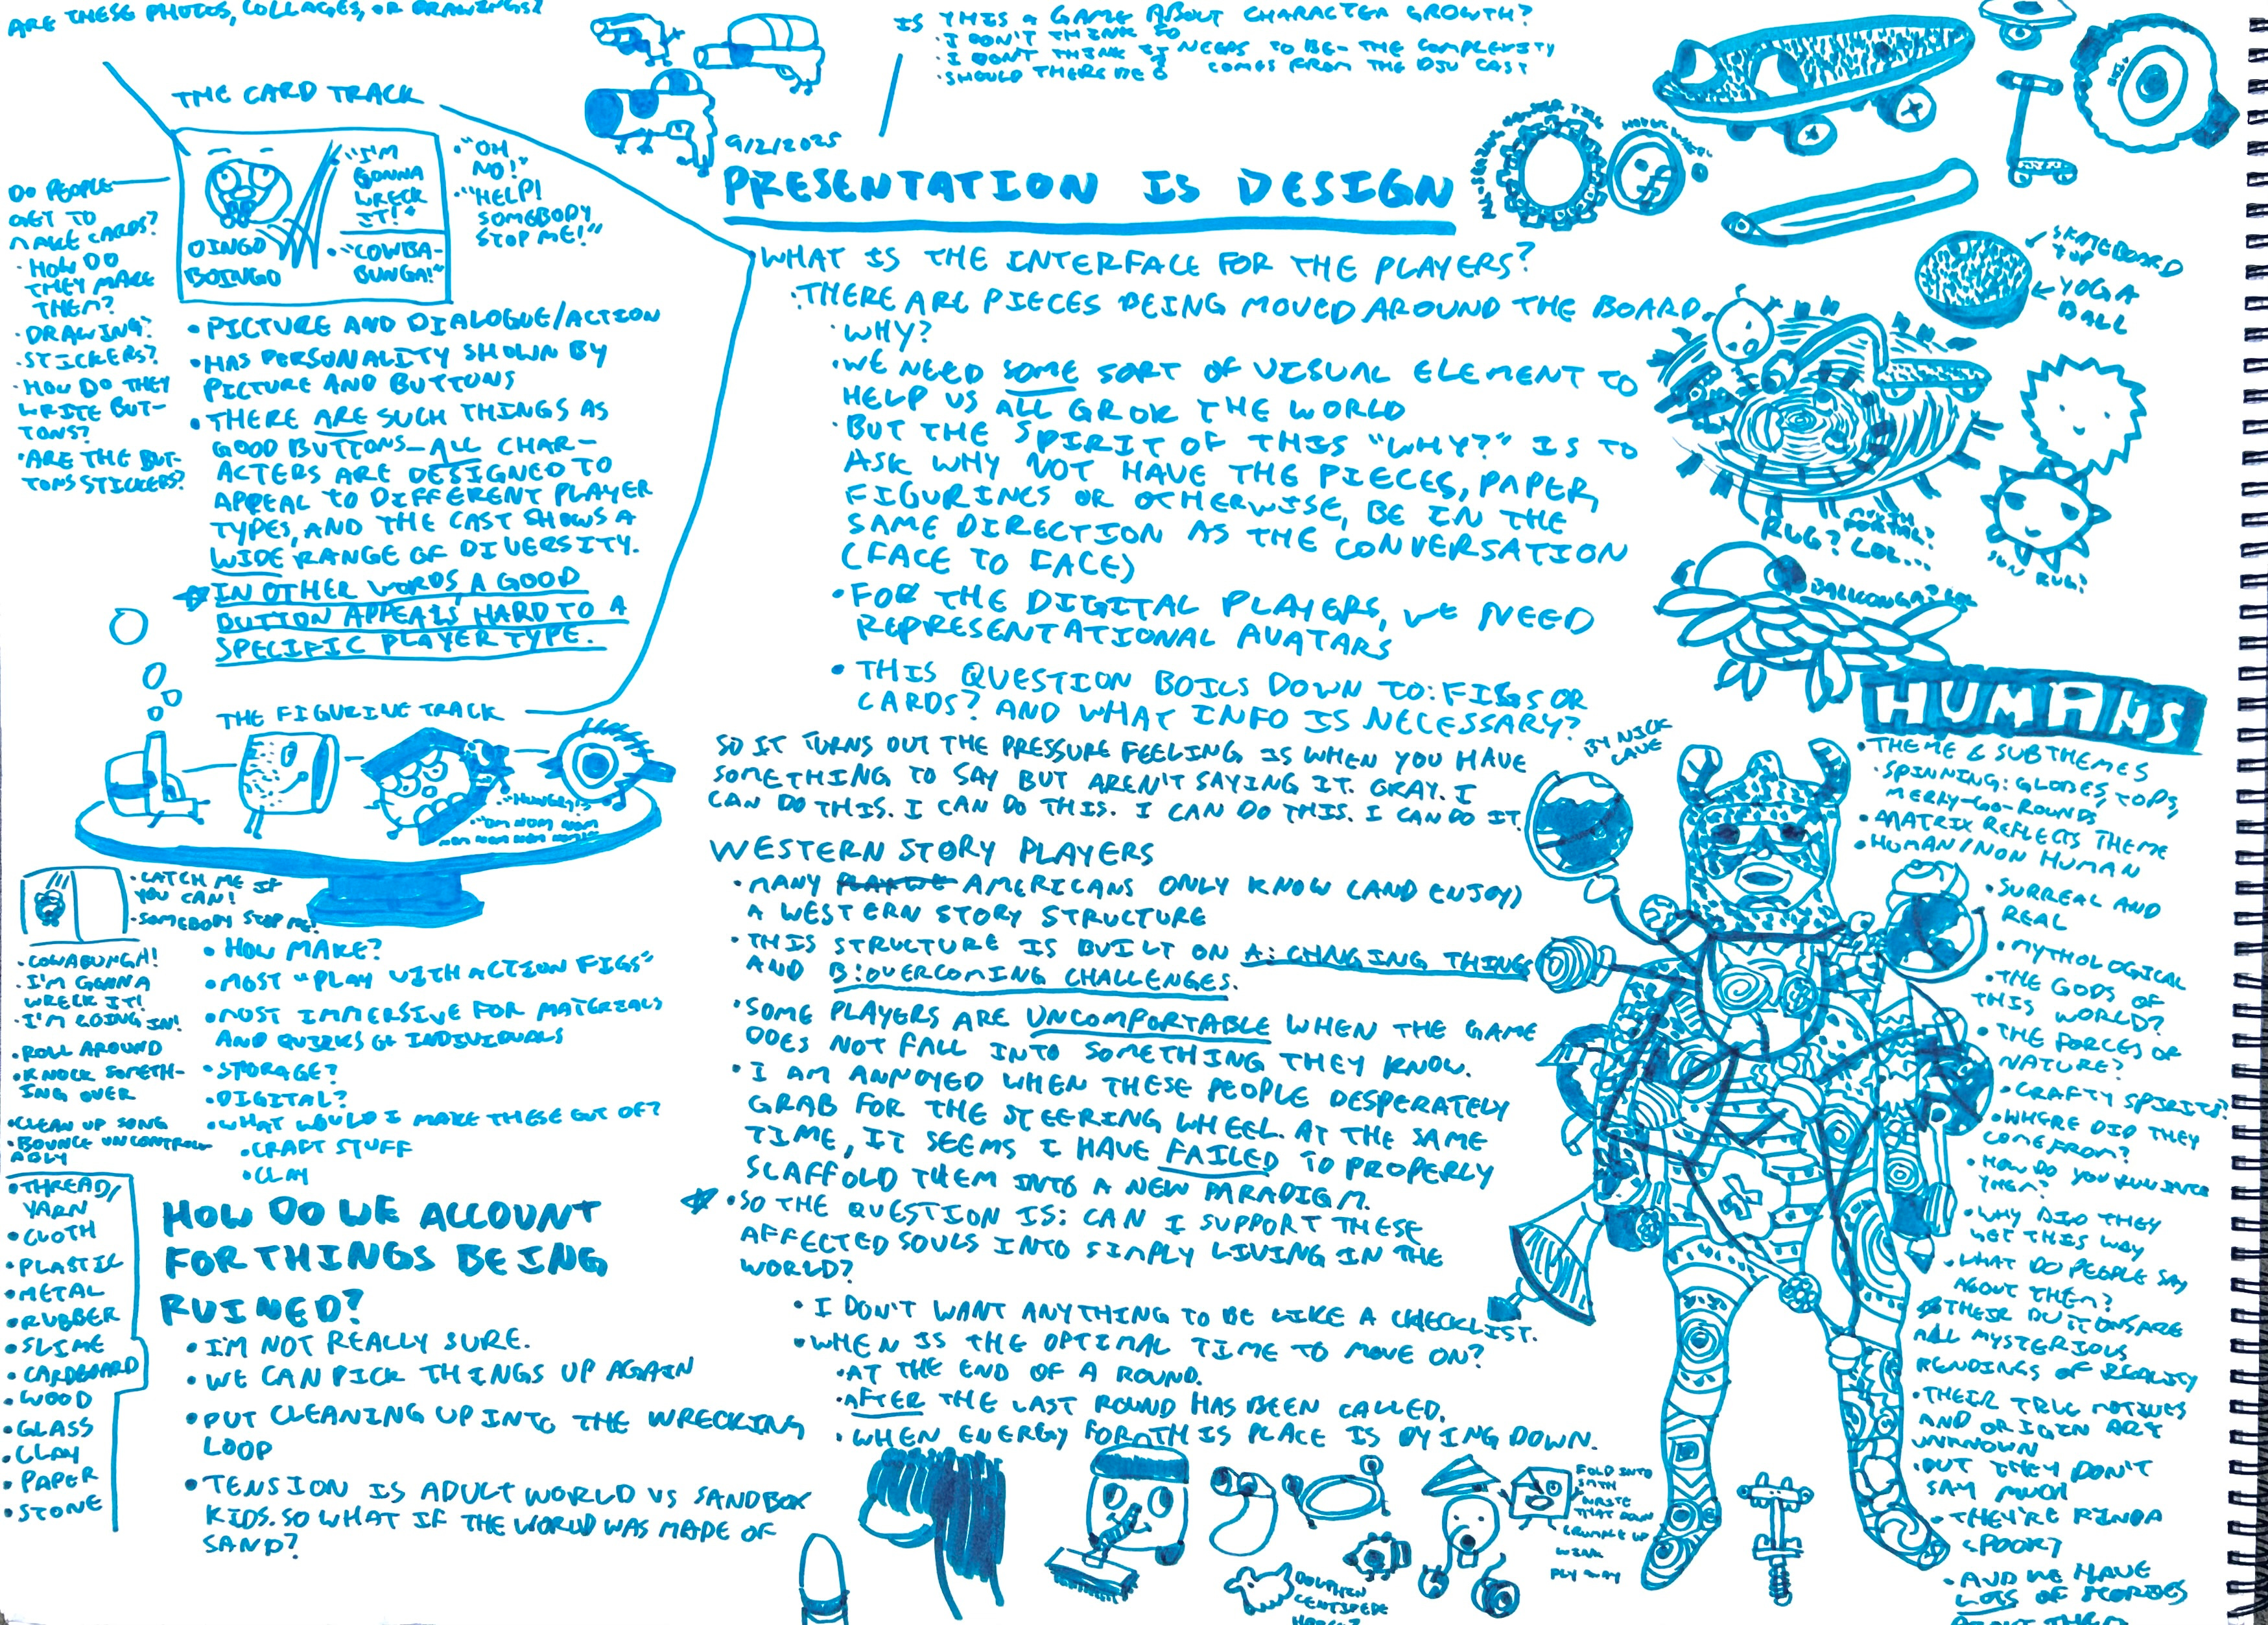 ARE THESE PHOTOS, COLLAGES, OR DRAWINGS?
THE CARD TRACK
"I'M
GONNA
WRECK
IT!"
"COWBA-
BUNGA!"
OINGO
BOINGO
• "OH
NO!"
• "HELP!
SOMEBODY
STOP ME!"
DO PEOPLE
GET TO
MAKE CARDS?
• HOW DO
THEY MAKE
THEM?
• DRAWING?
• STICKERS?
• HOW DO THEY
WRITE BUT-
TONS?
• ARE THE BUT-
TONS STICKERS?
• PICTURE AND DIALOGUE/ACTION
• HAS PERSONALITY SHOWN BY
PICTURE AND BUTTONS
• THERE ARE SUCH THINGS AS
GOOD BUTTONS—ALL CHAR-
ACTERS ARE DESIGNED TO
APPEAL TO DIFFERENT PLAYER
TYPES, AND THE CAST SHOWS A
WIDE RANGE OF DIVERSITY.
IN OTHER WORDS, A GOOD
BUTTON APPEALS HARD TO A
SPECIFIC PLAYER TYPE.
THE FIGURINE TRACK
• "HUNGRY!"
• "OM NOM NOM
NOM NOM NOM NOM!"
• CATCH ME IF
YOU CAN!
• SOMEBODY STOP ME!
• COWABUNGA!
• I'M GONNA
WRECK IT!
• I'M GOING IN!
• ROLL AROUND
• KNOCK SOMETH-
ING OVER
• CLEAN UP SONG
• BOUNCE UNCONTROLL-
ABLY
• THREAD/
YARN
• CLOTH
• PLASTIC
• METAL
• RUBBER
• SLIME
• CARDBOARD
• WOOD
• GLASS
• CLAY
• PAPER
• STONE
• HOW MAKE?
• MOST "PLAY WITH ACTION FIGS"
• MOST IMMERSIVE FOR MATERIALS
AND QUIRKS OF INDIVIDUALS
• STORAGE?
• DIGITAL?
• WHAT WOULD I MAKE THESE OUT OF?
• CRAFT STUFF
• CLAY
HOW DO WE ACCOUNT
FOR THINGS BEING
RUINED?
• I'M NOT REALLY SURE.
• WE CAN PICK THINGS UP AGAIN
• PUT CLEANING UP INTO THE WRECKING
LOOP
• TENSION IS ADULT WORLD VS SANDBOX
KIDS. SO WHAT IF THE WORLD WAS MADE OF
SAND?
IS THIS A GAME ABOUT CHARACTER GROWTH?
• I DON'T THINK SO
• I DON'T THINK IT NEEDS TO BE— THE COMPLEXITY
COMES FROM THE DJU CAST
• SHOULD THERE BE
9/2/2025
PRESENTATION IS DESIGN
WHAT IS THE INTERFACE FOR THE PLAYERS?
• THERE ARE PIECES BEING MOVED AROUND THE BOARD.
• WHY?
• WE NEED SOME SORT OF VISUAL ELEMENT TO
HELP US ALL GROK THE WORLD
• BUT THE SPIRIT OF THIS "WHY?" IS TO
ASK WHY NOT HAVE THE PIECES, PAPER,
FIGURINES OR OTHERWISE, BE IN THE
SAME DIRECTION AS THE CONVERSATION
(FACE TO FACE)
• FOR THE DIGITAL PLAYERS, WE NEED
REPRESENTATIONAL AVATARS
• THIS QUESTION BOILS DOWN TO: FIGS OR
CARDS? AND WHAT INFO IS NECESSARY?
SO IT TURNS OUT THE PRESSURE FEELING IS WHEN YOU HAVE
SOMETHING TO SAY BUT AREN'T SAYING IT. GRAY. I
CAN DO THIS. I CAN DO THIS. I CAN DO THIS. I CAN DO IT.
WESTERN STORY PLAYERS
• MANY AMERICANS ONLY KNOW (AND ENJOY)
A WESTERN STORY STRUCTURE
• THIS STRUCTURE IS BUILT ON A: CHNGING THINGS
AND B: OVERCOMING CHALLENGES.
• SOME PLAYERS ARE UNCOMFORTABLE WHEN THE GAME
DOES NOT FALL INTO SOMETHING THEY KNOW.
• I AM ANNOYED WHEN THESE PEOPLE DESPERATELY
GRAB FOR THE STEERING WHEEL. AT THE SAME
TIME, IT SEEMS I HAVE FAILED TO PROPERLY
SCAFFOLD THEM INTO A NEW PARADIGM.
• SO THE QUESTION IS: CAN I SUPPORT THESE
AFFECTED SOULS INTO SIMPLY LIVING IN THE
WORLD?
• I DON'T WANT ANYTHING TO BE LIKE A CHECKLIST.
• WHEN IS THE OPTIMAL TIME TO MOVE ON?
• AT THE END OF A ROUND.
• AFTER THE LAST ROUND HAS BEEN CALLED.
• WHEN ENERGY FOR THIS PLACE IS DYING DOWN.
DOLPHIN
CENTIPEDE
FOLD INTO
WRITE
THAT DOWN
CRUMPLE UP
WINK
FLY AWAY
SKATEBOARD
TOP
YOGA
BALL
RUG? LOL...
PORTAL?
SUN RUG!
BALLCONGA? LOL
BY NICK
CAVE
HUMANS
• THEME & SUBTHEMES
• SPINNING: GLOBES, TOPS,
MERRY-GO-ROUNDS
• MATRIX REFLECTS THEME
• HUMAN/NON HUMAN
• SURREAL AND
REAL
• MYTHOLOGICAL
• THE GODS OF
THIS WORLD?
• THE FORCES OF
NATURE?
• CRAFTY SPIRITS?
• WHERE DID THEY
COME FROM?
• HOW DO YOU RUN INTO
THEM?
• WHY DID THEY
GET THIS WAY
• WHAT DO PEOPLE SAY
ABOUT THEM?
THEIR BUTTONS ARE
ALL MYSTERIOUS
RENDINGS OF REALITY
• THEIR TRUE MOTIVES
AND ORIGIN ARE
UNKNOWN
• BUT THEY DON'T
SAY MUCH
• THEY'RE KINDA
SPOOKY
• AND WE HAVE
LOTS OF STORIES
ABOUT THEM